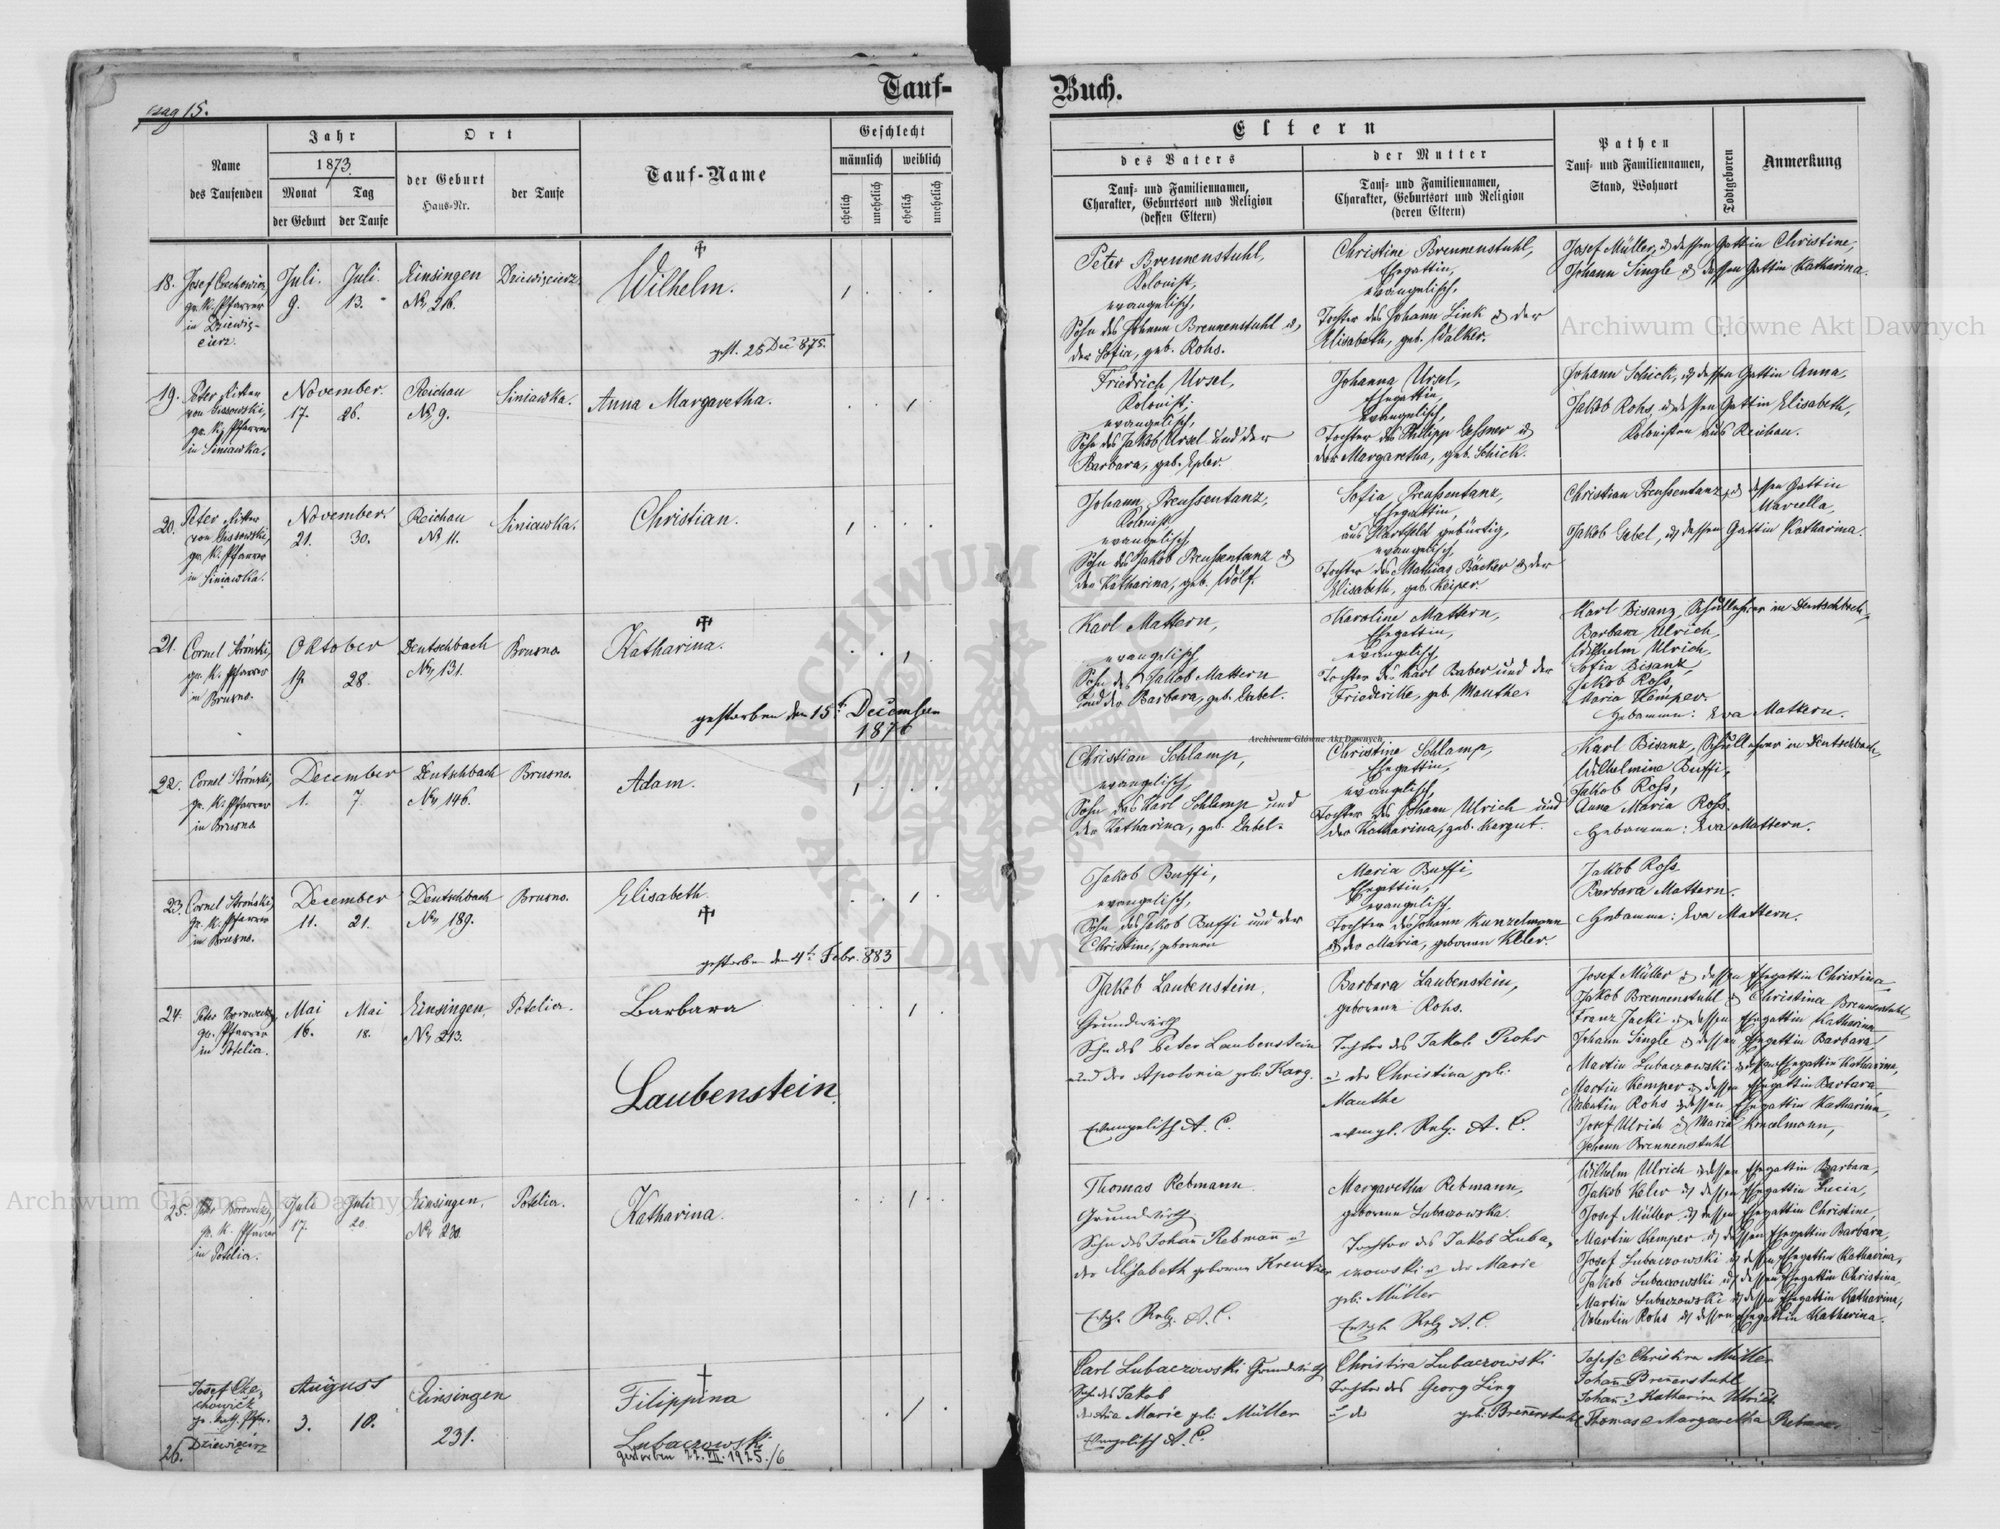 Tauf-
Buch.
pag 15.
Name
des Taufenden
Jahr
1873.
Monat
Tag
der Geburt
der Taufe
Ort
der Geburt
Haus-Nr.
der Taufe
Tauf-Name
Geschlecht
männlich
weiblich
ehelich
unehelich
ehelich
unehelich
Eltern
des Vaters
Tauf- und Familiennamen,
Charakter, Geburtsort und Religion
(dessen Eltern)
der Mutter
Tauf- und Familiennamen,
Charakter, Geburtsort und Religion
(deren Eltern)
Pathen
Tauf- und Familiennamen,
Stand, Wohnort
Todtgeboren
Anmerkung
18.
gr. K. Pfarrer
in Dziewię-
cierz.
Juli.
9.
Juli.
13.
Einsingen
Dziewięcierz
Wilhelm.
gest. 25 Dec 875.
Peter Brennenstuhl,
Kolonist,
evangelisch,
Sohn des Johann Brennenstuhl u.
der Sofia, geb. Rohs.
Christine Brennenstuhl,
Ehegattin,
evangelisch,
Tochter des Johann Link u der
Elisabeth, geb. Walker.
Josef Müller, u dessen Gattin Christine,
Johann Single u dessen Gattin Katharina.
19.
gr. K. Pfarrer
in Siniawka.
November.
17.
26.
Reichau
No 9.
Siniawka.
Anna Margaretha.
Friedrich Ursel,
Kolonist,
evangelisch,
Sohn des Jakob Ursel und der
Barbara, geb. Epler.
Johanna Ursel,
Ehegattin,
evangelisch,
Tochter des Philipp Gessner u
der Margaretha, geb. Schick.
Johann Schick, u dessen Gattin Anna,
Jakob Rohs, u dessen Gattin Elisabeth,
Kolonisten aus Reichau.
20.
gr. K. Pfarrer
in Siniawka.
November.
21.
30.
Reichau
No 11.
Siniawka.
Christian.
Johann Preussentanz,
Kolonist
evangelisch
Sohn des Jakob Preussentanz u
der Katharina, geb. Wolf.
Sofia Preussentanz,
Ehegattin,
aus Hartfeld gebürtig,
evangelisch,
Tochter des Mathias Bäcker u der
Elisabeth, geb. Keiper.
Christian Preussentanz, u dessen Gattin
Marcella,
Jakob Gabel, u dessen Gattin Katharina.
21.
Cornel Stroński,
gr. K. Pfarrer
in Brusno.
Oktober
19.
28.
Deutschbach
No 131.
Brusno
Katharina.
gestorben den 15t December
1876
Karl Mattern,
evangelisch,
Sohn des Jakob Mattern
und der Barbara, geb. Zabel.
Karoline Mattern,
Ehegattin,
evangelisch,
Tochter des Karl Baber und der
Friederike, geb. Manthe.
Karl Bisanz, Schullehrer in Deutschbach,
Barbara Ulrich,
Wilhelm Ulrich,
Sofia Bisanz,
Jakob Ross,
Maria Kemper.
Hebamme: Eva Mattern.
22.
Cornel Stroński,
gr. K. Pfarrer
in Brusno
December
1.
7.
Deutschbach
No 146.
Brusno.
Adam.
Christian Schlamp,
evangelisch,
Sohn des Karl Schlamp und
der Katharina, geb. Zabel.
Christine Schlamp,
Ehegattin,
evangelisch,
Tochter des Johann Ulrich und
der Katharina, geb. Margut.
Karl Bisanz, Schullehrer in Deutschbach,
Wilhelmine Buffi,
Jakob Ross,
Anna Maria Ross.
Hebamme: Eva Mattern.
23.
Cornel Stroński,
gr. K. Pfarrer
in Brusno.
December
11.
21.
Deutschbach
No 189.
Brusno.
Elisabeth
gestorben den 4t Febr. 883
Jakob Buffi,
evangelisch,
Sohn des Jakob Buffi und der
Christine, geborenen
Maria Buffi,
Ehegattin,
evangelisch.
Tochter des Johann Kunzelmann
u der Maria, geborenen Keler.
Jakob Ross
Barbara Mattern.
Hebamme: Eva Mattern.
24.
gr. Pfarrer
in Potelia.
Mai
16.
Mai
18.
Einsingen
No 213.
Potelia.
Barbara
Laubenstein.
Jakob Laubenstein.
Grundwirth
Sohn des Peter Laubenstein
und der Apolonia geb. Karg.
Evangelisch A. C.
Barbara Laubenstein,
geborene Rohs.
Tochter des Jakob Rohs
u der Christina geb.
Manthe
evangl. Relg. A. C.
Josef Müller u dessen Ehegattin Christina
Jakob Brennenstuhl u Christina Brennenstuhl,
Franz Jacki u dessen Ehegattin Katharina
Johann Single u dessen Ehegattin Barbara,
Martin Lubaczowski u dessen Ehegattin Katharina,
Martin Kemper u dessen Ehegattin Barbara,
Valentin Rohs u dessen Ehegattin Katharina,
Josef Ulrich u Maria Konzelmann,
Johann Brennenstuhl
25.
gr. K. Pfarrer
in Potelia.
Juli
17.
Juli
20
Einsingen,
Potelia.
Katharina.
Thomas Rebmann
Grundwirth
Sohn des Johann Rebmann u
der Elisabeth geborene Kreutzer
Evgl. Relg. A. C.
Margaretha Rebmann,
geborene Lubaczowska.
Tochter des Jakob Luba-
czowski u der Marie
geb. Müller
Evgl. Relg A. C.
Wilhelm Ulrich u dessen Ehegattin Barbara,
Jakob Keler u dessen Ehegattin Lucia,
Josef Müller u dessen Ehegattin Christine,
Martin Kemper u dessen Ehegattin Barbara,
Josef Lubaczowski u dessen Ehegattin Katharina,
Jakob Lubaczowski u dessen Ehegattin Christina,
Martin Lubaczowski u dessen Ehegattin Katharina,
Valentin Rohs u dessen Ehegattin Katharina.
Josef Cze-
chowicz
gr. kath. Pfr.
Dziewięcirz
26.
August
3.
10.
Einsingen
231.
Filippina
Lubaczowski
gestorben 22. VII. 1925./6
Carl Lubaczowski Grundwirth
Sohn des Jakob
der Ana Marie geb. Müller
Evangelisch A. C.
Christina Lubaczowski
Tochter des Georg Ling
u der geb. Brenerstuhl
Josef u Christina Müller
Johan Brenerstuhl
Johan u Katharina Ulrich
Thomas u Margaretha Rebman.
Archiwum Główne Akt Dawnych
Archiwum Główne Akt Dawnych
Archiwum Główne Akt Dawnych